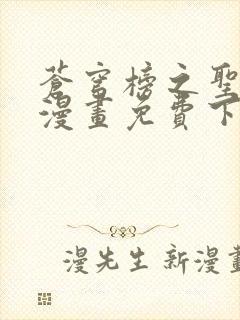 蒼穹榜之聖
漫畫免費下
漫先生新漫畫